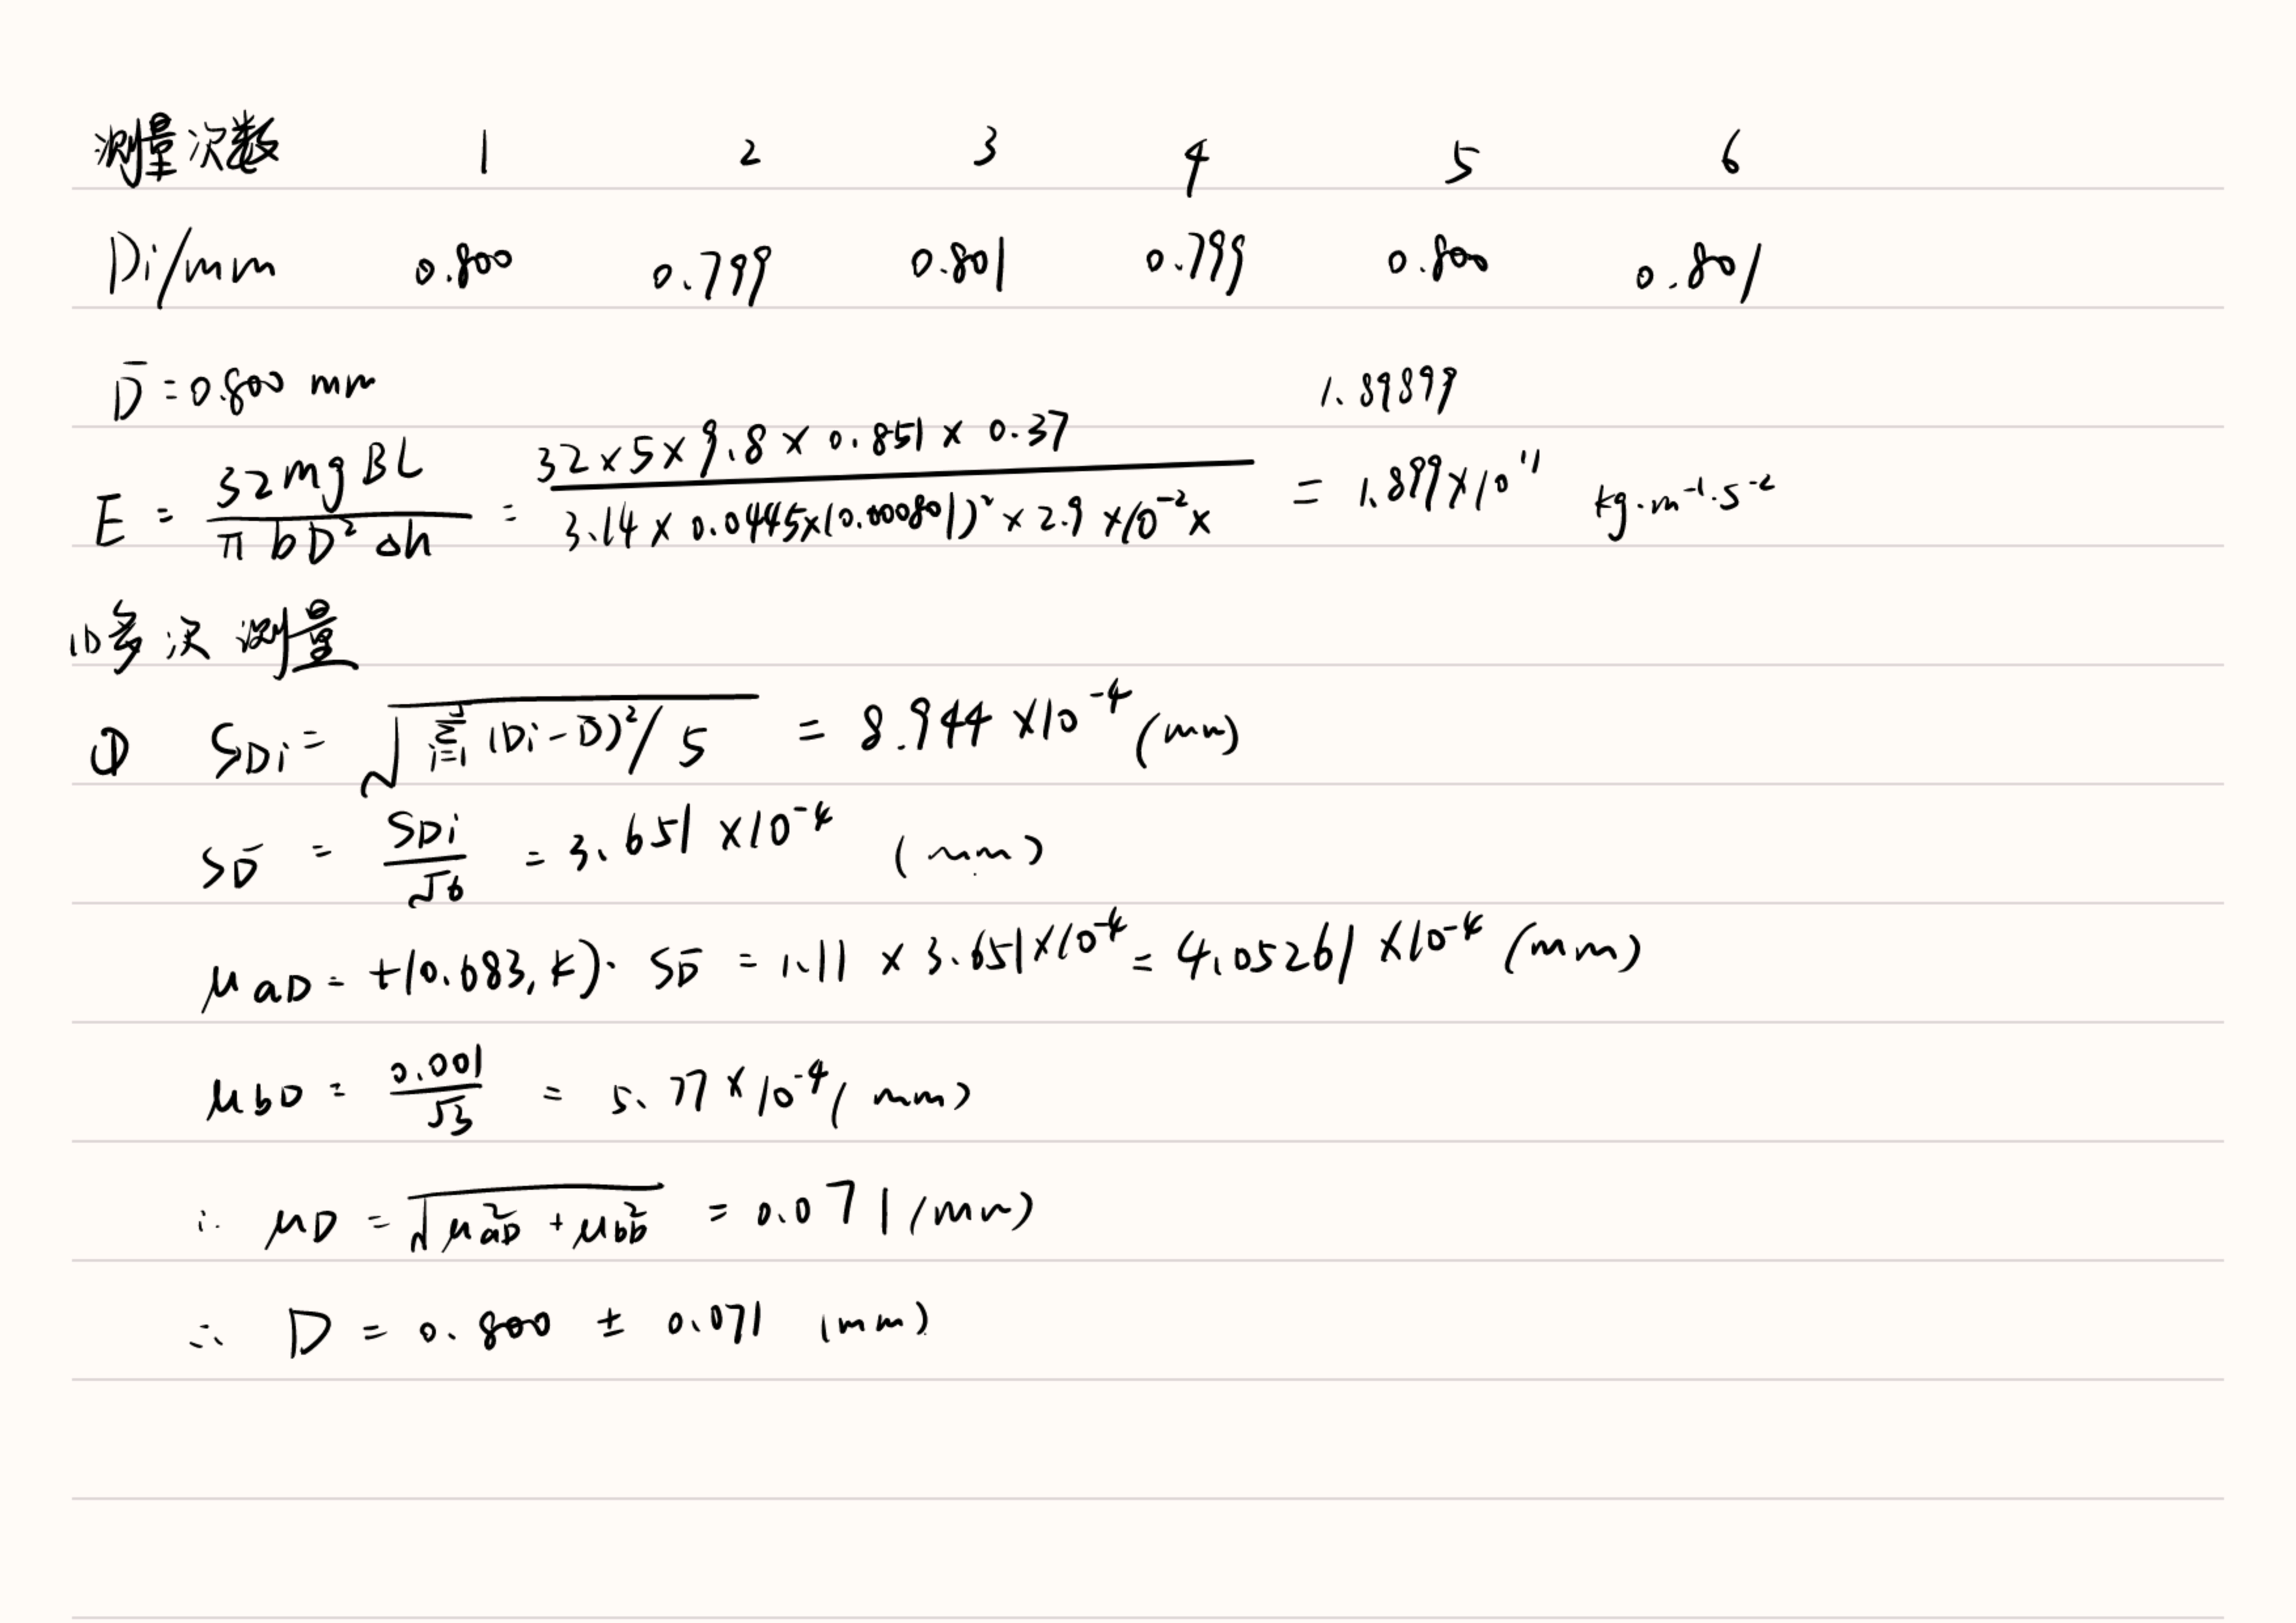 测量次数 1 2 3 4 5 6
Di/mm 0.800 0.799 0.801 0.799 0.800 0.801
D̄ = 0.800 mm
1.89899
E = 32mgBL / πbD²Δh = 32×5×9.8×0.851×0.37 / 3.14×0.0445×(0.000801)²×2.9×10⁻²× = 1.899×10¹¹ kg·m⁻¹·s⁻²
(1)多次测量
① SDi = √(Σ i=1 (Di-D̄)²/5) = 8.944×10⁻⁴ (mm)
SD̄ = SDi/√6 = 3.651×10⁻⁴ (mm)
μaD = t(0.683, k)·SD̄ = 1.11×3.651×10⁻⁴ = 4.05261×10⁻⁴ (mm)
μbD = 0.001/√3 = 5.77×10⁻⁴ (mm)
∴ μD = √(μ²aD + μ²bD) = 0.071 (mm)
∴ D = 0.800 ± 0.071 (mm)